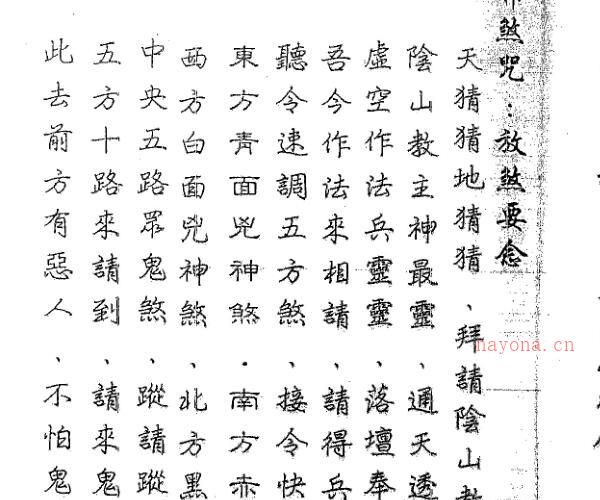 煞咒：放煞要念
天猜猜地猜猜、拜請陰山教
陰山教主神最靈、通天透
虛空作法兵靈靈、落壇奉
吾今作法來相請、請得兵
聽令速調五方煞、接令快
東方青面兇神煞．南方赤
西方白面兇神煞、北方黑
中央五路眾鬼煞、蹤請蹤
五方十路來請到、請來鬼
此去前方有惡人、不怕鬼
nayona.cn